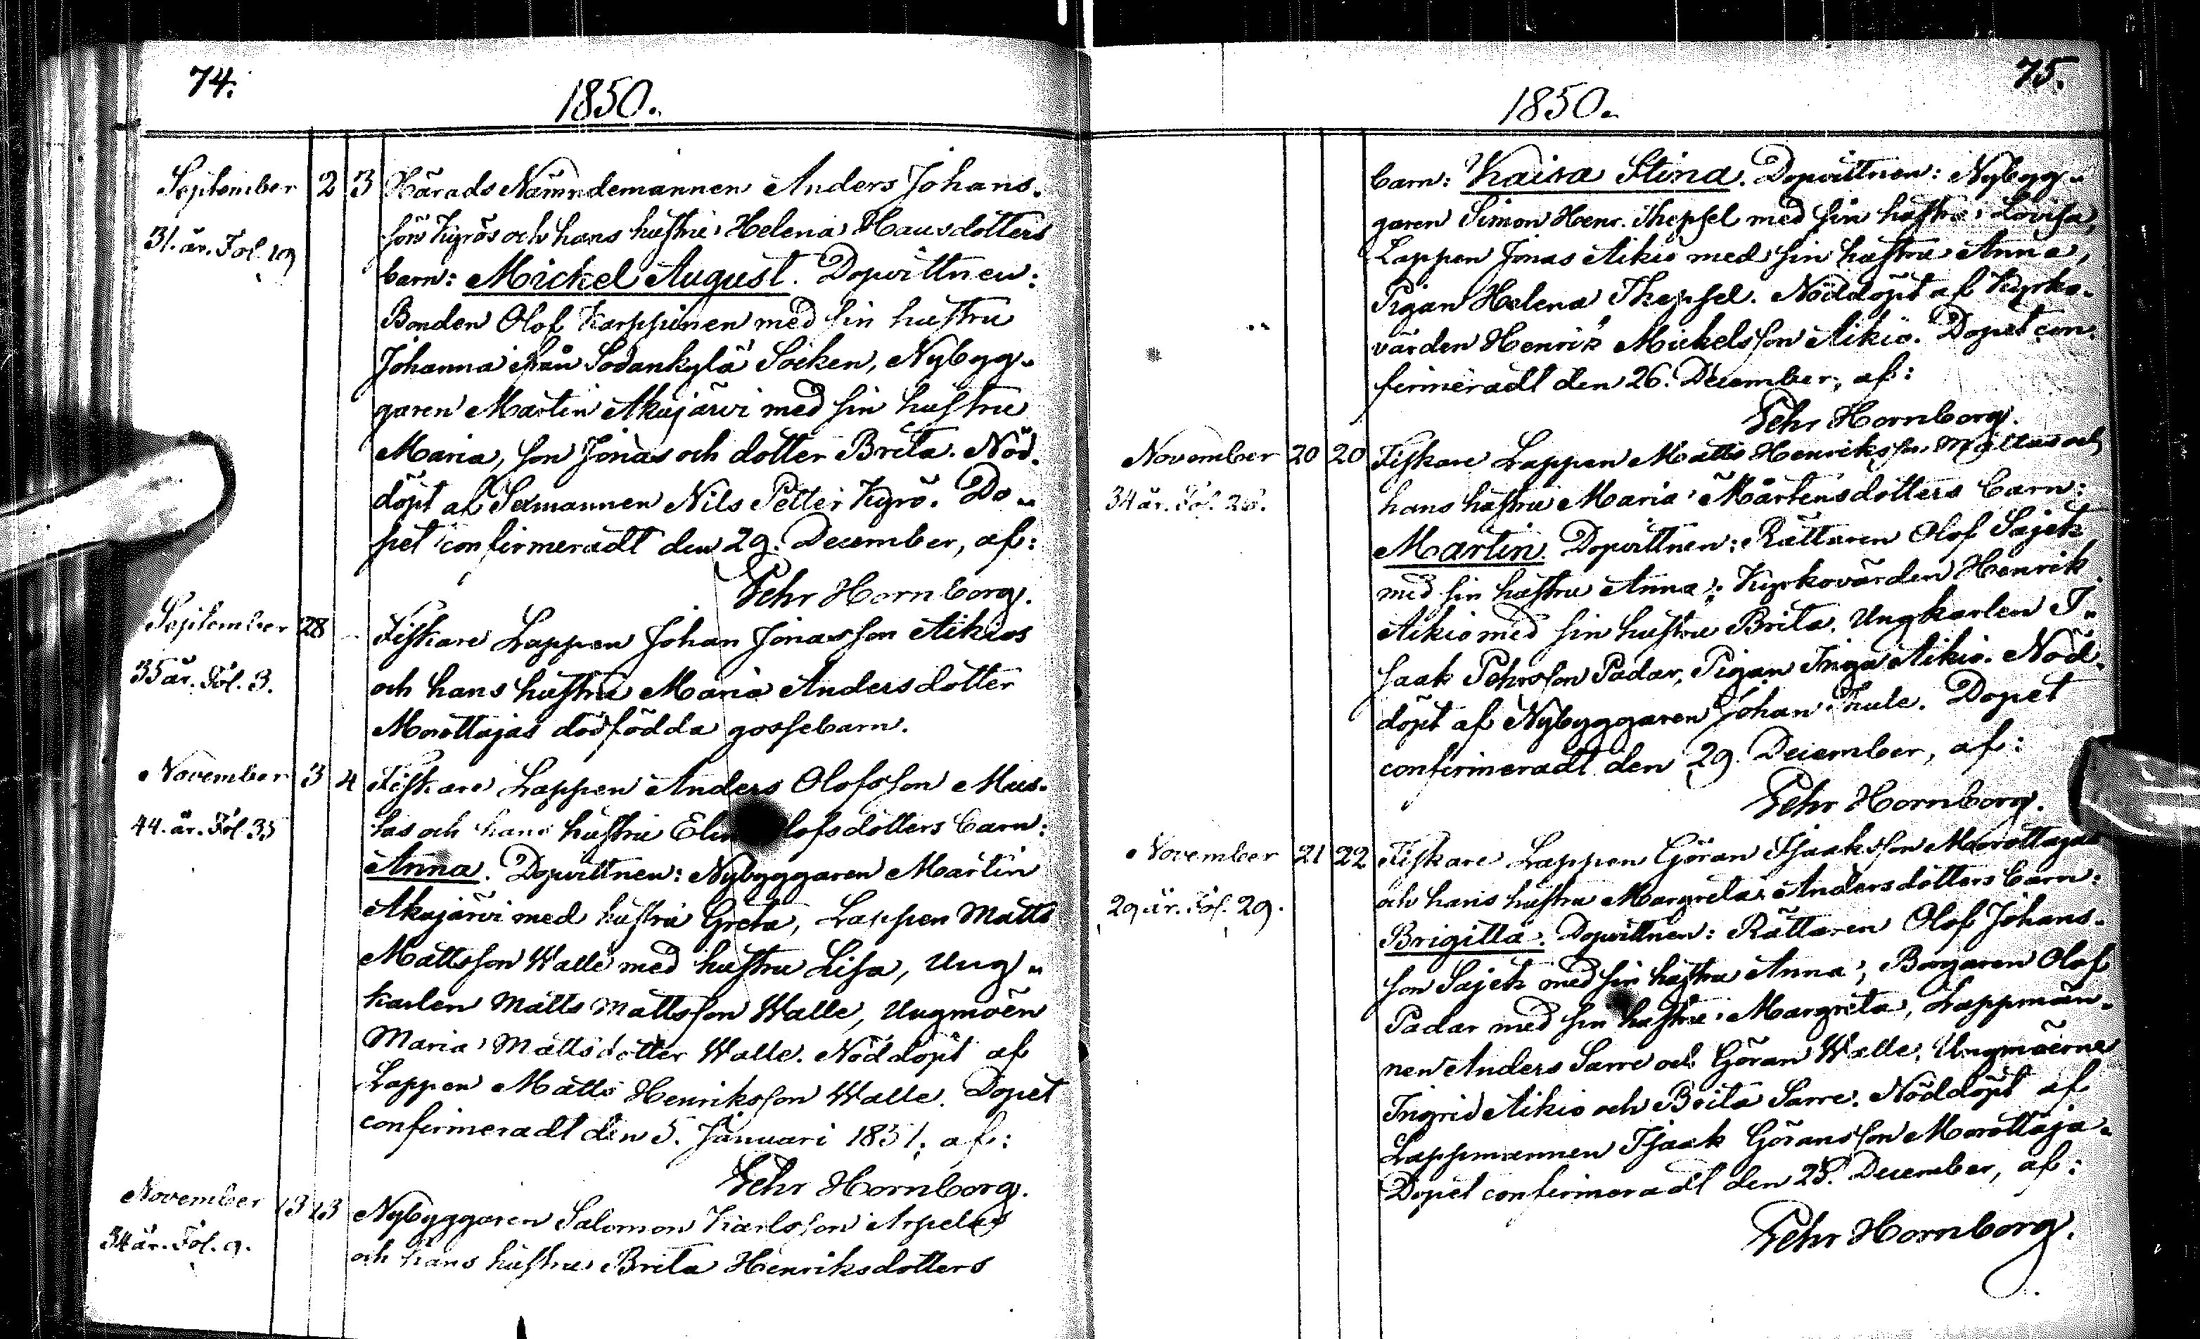 74.
1850.
September 2 3 Härads Nämndemannen Anders Johans-
31. år. Fol. 19 son Kyrös och hans hustru Helena Hansdotters
barn: Mickel August. Dopvittnen:
Bonden Olof Karppinen med sin hustru
Johanna från Sodankylä Socken, Nybygg-
garen Martin Akujärvi med sin hustru
Maria, son Jonas och dotter Brita. Nöd-
döpt af Sexmannen Nils Petter Kyrö. Do-
pet confirmeradt den 29. December, af:
Pehr Hornborg.
September 28 - Fiskare Lappen Johan Jonasson Aikios
35 år. Fol. 3. och hans hustru Maria Andersdotter
Morottajas dödfödda gossebarn.
November 3 4 Fiskare Lappen Anders Olofsson Mus-
44. år. Fol. 35 tas och hans hustru Elin Olofsdotters barn:
Anna. Dopvittnen: Nybyggaren Martin
Akujärvi med hustru Greta, Lappen Matts
Mattsson Walle med hustru Lisa, Ung-
karlen Matts Mattsson Walle, Ungmöen
Maria Mattsdotter Walle. Nöddöpt af
Lappen Matts Henriksson Walle. Dopet
confirmeradt den 5. Januari 1851. af:
Pehr Hornborg.
November 13 13 Nybyggaren Salomon Karlsson Arpelas
34 år. Fol. 9. och hans hustru Brita Henriksdotters
75.
1850.
barn: Kaisa Stina. Dopvittnen: Nybygg-
garen Simon Henr. Thepsel med sin hustru Lovisa,
Lappen Jonas Aikio med sin hustru Anna,
Pigan Helena Thepsel. Nöddöpt af Kyrko-
värden Henrik Mickelsson Aikio. Dopet con-
firmeradt den 26. December, af:
Pehr Hornborg.
November 20 20 Fiskare Lappen Matts Henriksson och
34 år. Fol. hans hustru Maria Mårtensdotters barn:
Martin. Dopvittnen: Rättaren Olof Sajek
med sin hustru Anna, Kyrkovärden Henrik
Aikio med sin hustru Brita. Ungkarlen I-
saak Pehrsson Padar, Pigan Inga Aikio. Nöd-
döpt af Nybyggaren Johan Thule. Dopet
confirmeradt den 29. December, af:
Pehr Hornborg.
November 21 22 Fiskare Lappen Göran Isaaksson Morottajas
29 år. Fol. 29. och hans hustru Margreta Andersdotters barn:
Brigitta. Dopvittnen: Rättaren Olof Johans-
son Sajek med sin hustru Anna, Borgaren Olof
Padar med sin hustru Margreta, Lappmän-
nen Anders Sarre och Göran Walle, Ungmöerne
Ingrid Aikio och Brita Sarre. Nöddöpt af
Lappmannen Isaak Göransson Morottaja.
Dopet confirmeradt den 25. December, af:
Pehr Hornborg.